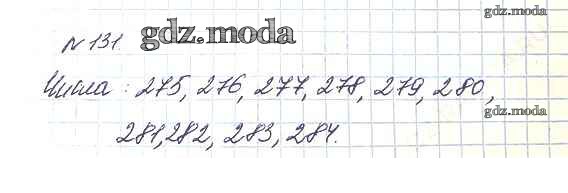 gdz.moda
№ 131. gdz.moda
Числа : 275, 276, 277, 278, 279, 280,
gdz.moda
281, 282, 283, 284.